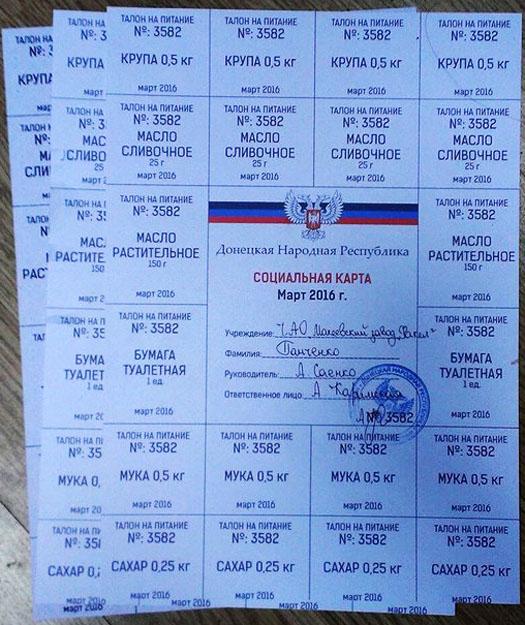 ТАЛОН НА ПИТАНИЕ
№: 3582
КРУПА 0,5 кг
март 2016
ТАЛОН НА ПИТАНИЕ
№: 3582
КРУПА 0,5 кг
март 2016
ТАЛОН НА ПИТАНИЕ
№: 3582
КРУПА 0,5 кг
март 2016
ТАЛОН НА ПИТАНИЕ
№: 3582
КРУПА 0,5 кг
март 2016
ТАЛОН НА ПИТАНИЕ
№: 3582
МАСЛО
СЛИВОЧНОЕ
25 г
март 2016
ТАЛОН НА ПИТАНИЕ
№: 3582
МАСЛО
СЛИВОЧНОЕ
25 г
март 2016
ТАЛОН НА ПИТАНИЕ
№: 3582
МАСЛО
СЛИВОЧНОЕ
25 г
март 2016
ТАЛОН НА ПИТАНИЕ
№: 3582
МАСЛО
СЛИВОЧНОЕ
25 г
март 2016
ТАЛОН НА ПИТАНИЕ
№: 3582
МАСЛО
РАСТИТЕЛЬНОЕ
150 г
март 2016
Донецкая Народная Республика
СОЦИАЛЬНАЯ КАРТА
Март 2016 г.
Учреждение: ЧАО Макеевский завод "Факел"
Фамилия: Панченко
Руководитель: А Саенко
Ответственное лицо: А
№ 3582
ТАЛОН НА ПИТАНИЕ
№: 3582
МАСЛО
РАСТИТЕЛЬНОЕ
150 г
март 2016
ТАЛОН НА ПИТАНИЕ
№: 3582
БУМАГА
ТУАЛЕТНАЯ
1 ед.
март 2016
ТАЛОН НА ПИТАНИЕ
№: 3582
БУМАГА
ТУАЛЕТНАЯ
1 ед.
март 2016
ТАЛОН НА ПИТАНИЕ
№: 3582
МУКА 0,5 кг
март 2016
ТАЛОН НА ПИТАНИЕ
№: 3582
МУКА 0,5 кг
март 2016
ТАЛОН НА ПИТАНИЕ
№: 3582
МУКА 0,5 кг
март 2016
ТАЛОН НА ПИТАНИЕ
№: 3582
МУКА 0,5 кг
март 2016
ТАЛОН НА ПИТАНИЕ
№: 3582
САХАР 0,25 кг
март 2016
ТАЛОН НА ПИТАНИЕ
№: 3582
САХАР 0,25 кг
март 2016
ТАЛОН НА ПИТАНИЕ
№: 3582
САХАР 0,25 кг
март 2016
ТАЛОН НА ПИТАНИЕ
№: 3582
САХАР 0,25 кг
март 2016